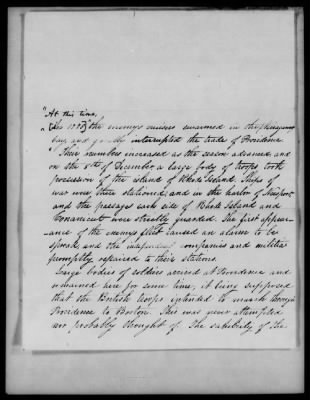 "At this time,
the enemy's cruisers swarmed in the Narragansett
bay, and greatly interrupted the trade of Providence.
"Their numbers increased as the season advanced and
on the 8th of December a large body of troops took
possession of the island of Rhode Island. Ships of
war were then stationed, and in the harbor of Newport
and the passages each side of Rhode Island and
Conanicut were strictly guarded. The first appear-
-ance of the enemy's fleet caused an alarm to be
spread, and the independent companies and militia
promptly repaired to their stations.
Large bodies of soldiers arrived at Providence and
remained here for some time, it being supposed
that the British troops intended to march through
Providence to Boston. This was never attempted
nor probably thought of. The salubrity of the